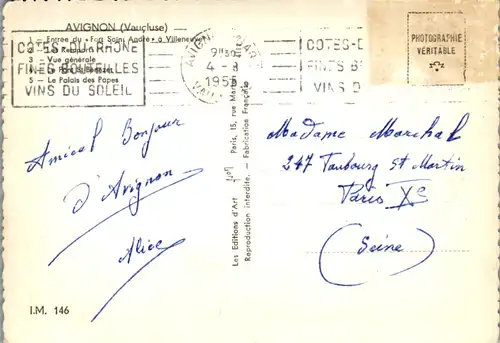 AVIGNON (Vaucluse)
1 — Entrée du « Fort Saint André » à Villeneuve
2 — Le Rempart
3 — Vue générale
4 — Le Pont St-Bénézet
5 — Le Palais des Papes
COTES DU RHONE
FINES BOUTEILLES
VINS DU SOLEIL
AVIGNON
9H30
4 - 8
COTES-D
FINES B
VINS D
PHOTOGRAPHIE
VÉRITABLE
Amical Bonjour
d'Avignon
Alice
I.M. 146
Les Editions d'Art
Paris, 15, rue
Reproduction interdite. - Fabrication Française
Madame Marchal
247 Faubourg St Martin
Paris Xe
(Seine)